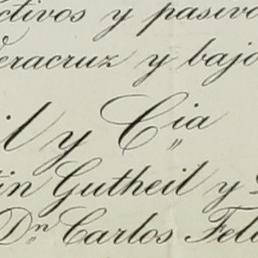 ctivos y pasivo
Veracruz y bajo
il y Cia
tin Gutheil y
Dn Carlos Feli